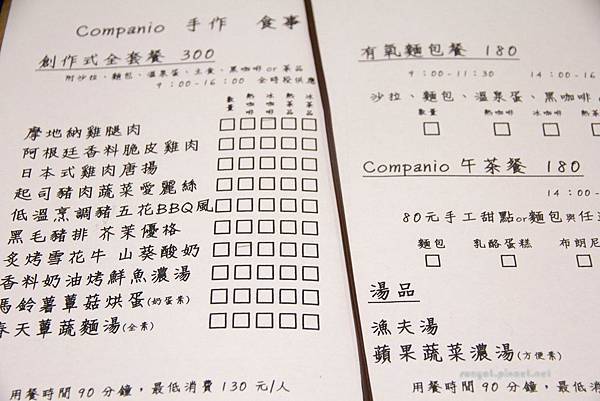 Companio 手作 食事
創作式全套餐 300
附沙拉、麵包、溫泉蛋、主食、黑咖啡or茶品
9:00-16:00 全時段供應
數量 熱咖啡 冰咖啡 熱茶品 冰茶品
摩地納雞腿肉
阿根廷香料脆皮雞肉
日本式雞肉唐揚
起司豬肉蔬菜愛麗絲
低溫烹調豬五花BBQ風
黑毛豬排 芥茉優格
炙烤雪花牛 山葵酸奶
香料奶油烤鮮魚濃湯
馬鈴薯蕈菇烘蛋(奶蛋素)
春天蕈蔬麵湯(全素)
用餐時間90分鐘，最低消費130元/人
有氧麵包餐 180
9:00-11:30 14:00-16
沙拉、麵包、溫泉蛋、黑咖啡
數量 熱咖啡 冰咖啡 熱茶品
Companio午茶餐 180
14:00-
80元手工甜點or麵包與任
麵包 乳酪蛋糕 布朗尼
湯品
漁夫湯
蘋果蔬菜濃湯(方便素)
用餐時間90分鐘，最低消